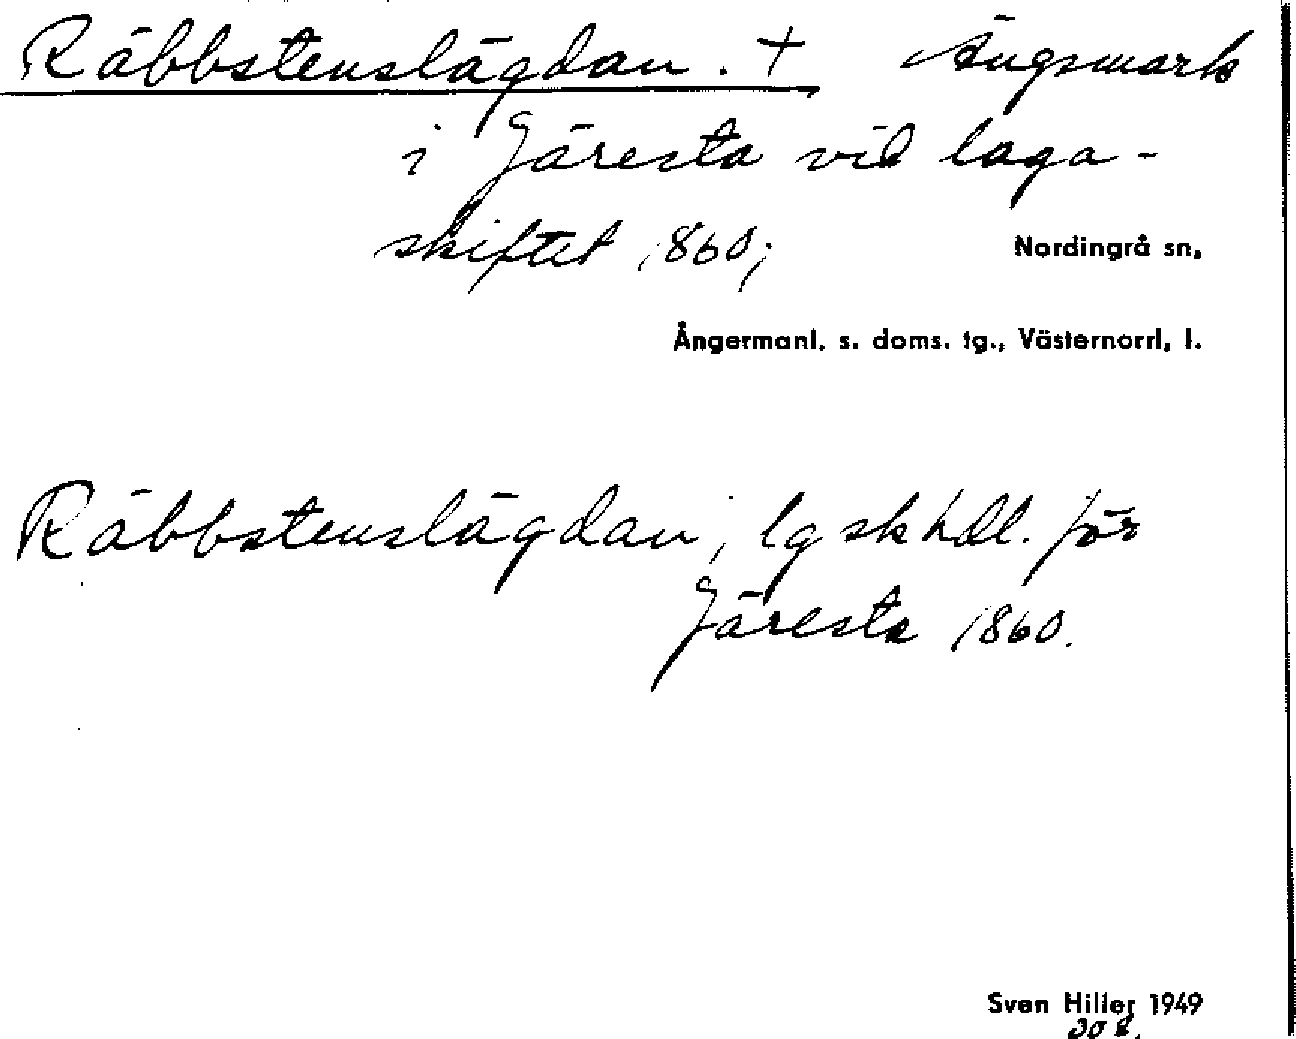 Räbbstenslägdan. + Ängsmark
i Järesta vid laga-
skiftet 1860;
Nordingrå sn,
Ångermanl. s. doms. tg., Västernorrl. l.
Räbbstenslägdan, lg sk hdl. för
Järesta 1860.
Sven Hiller 1949